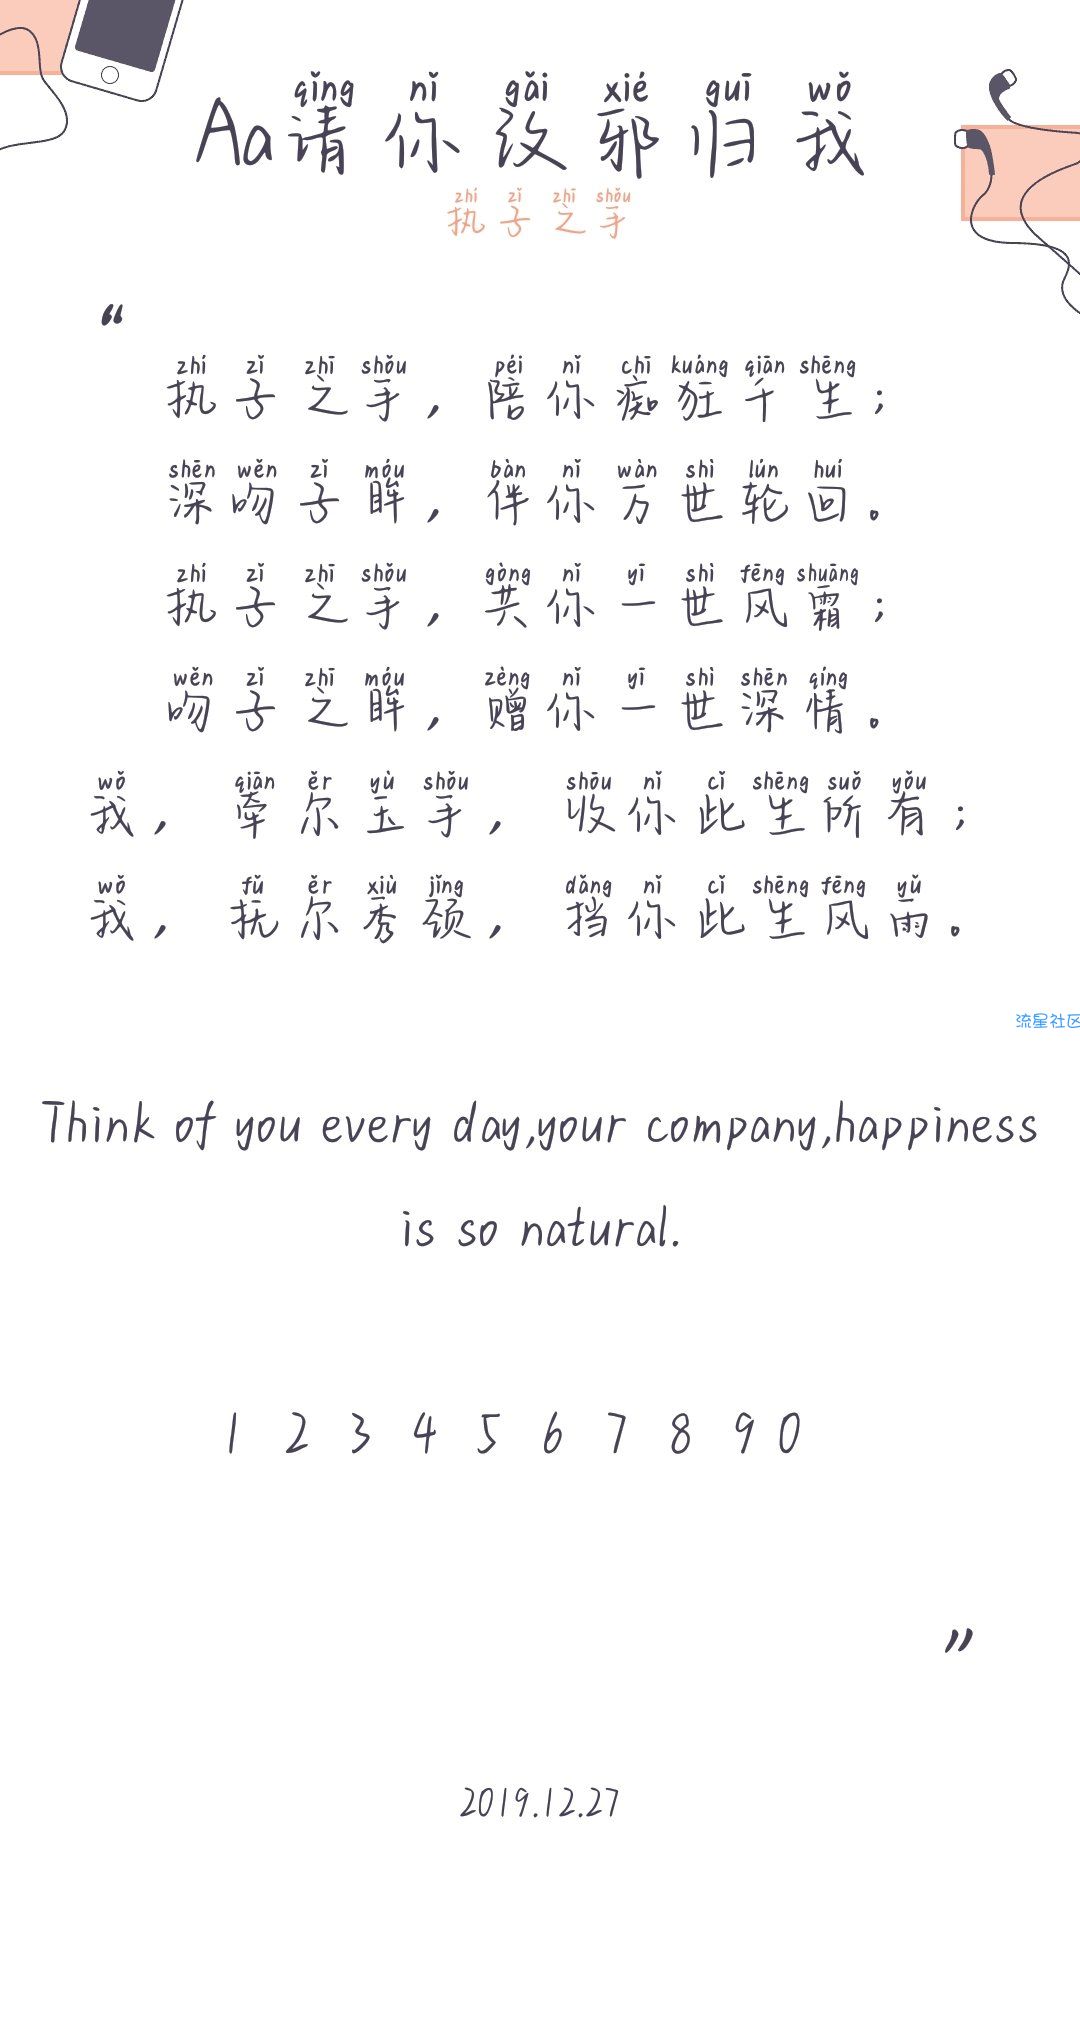 qǐng nǐ gǎi xié guī wǒ
Aa请你改邪归我
zhí zǐ zhī shǒu
执子之手
“
zhí zǐ zhī shǒu péi nǐ chī kuáng qiān shēng
执子之手，陪你痴狂千生；
shēn wěn zǐ móu bàn nǐ wàn shì lún huí
深吻子眸，伴你万世轮回。
zhí zǐ zhī shǒu gòng nǐ yī shì fēng shuāng
执子之手，共你一世风霜；
wěn zǐ zhī móu zèng nǐ yī shì shēn qíng
吻子之眸，赠你一世深情。
wǒ qiān ěr yù shǒu shōu nǐ cǐ shēng suǒ yǒu
我，牵尔玉手，收你此生所有；
wǒ fǔ ěr xiù jǐng dǎng nǐ cǐ shēng fēng yǔ
我，抚尔秀颈，挡你此生风雨。
流星社区
Think of you every day,your company,happiness
is so natural.
1 2 3 4 5 6 7 8 9 0
”
2019.12.27